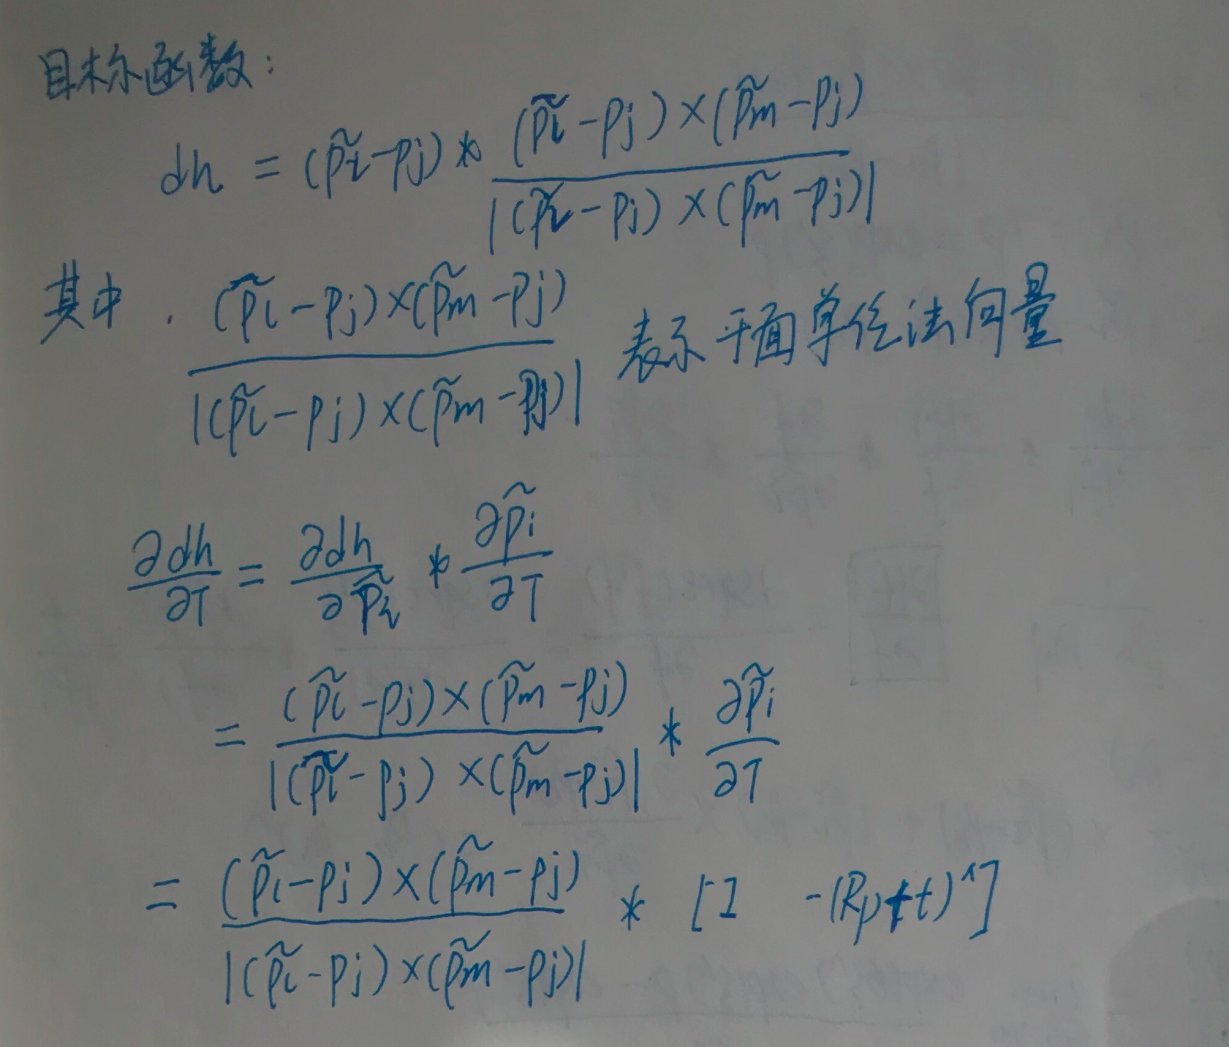 目标函数:
dh = (p̃i-pj) * (p̃i-pj)×(p̃m-pj) / |(p̃i-pj)×(p̃m-pj)|
其中. (p̃i-pj)×(p̃m-pj) / |(p̃i-pj)×(p̃m-pj)| 表示平面单位法向量
∂dh/∂T = ∂dh/∂p̃i * ∂p̃i/∂T
= (p̃i-pj)×(p̃m-pj) / |(p̃i-pj)×(p̃m-pj)| * ∂p̃i/∂T
= (p̃i-pj)×(p̃m-pj) / |(p̃i-pj)×(p̃m-pj)| * [I -(Rp+t)^]